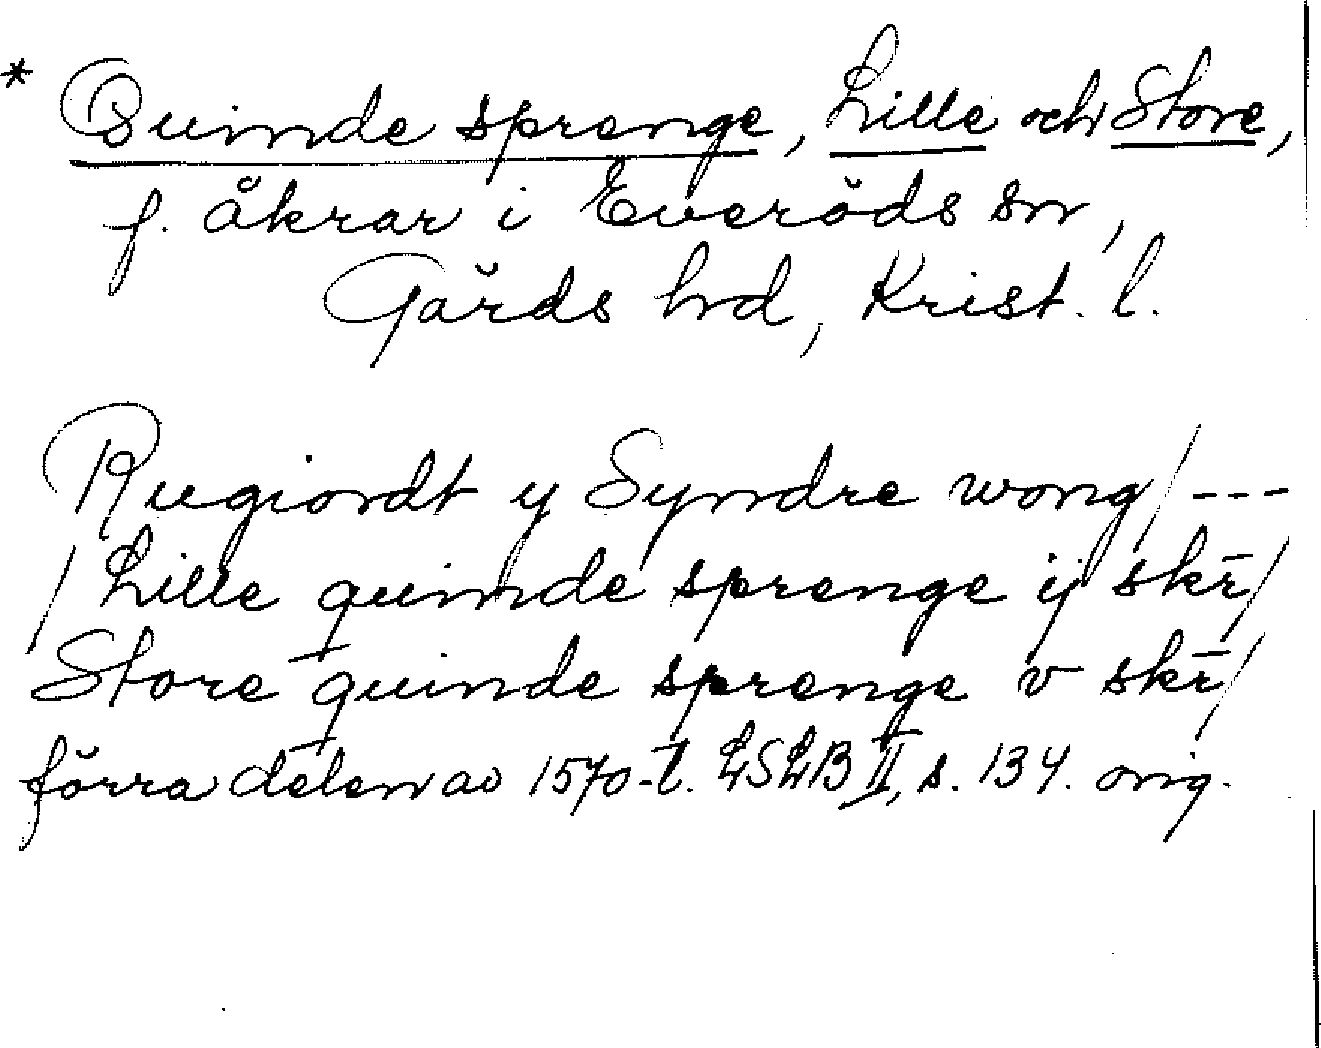 * Quinde sprenge, Lille och Store,
f. åkrar i Everöds sn,
Gärds hd, Krist. l.
Rugiordt y Syndre wong/---
/Lille quinde sprenge ij skr̄/
Store quinde sprenge v skr̄/
förra delen av 1570-t. LSLB II, s. 134. orig.